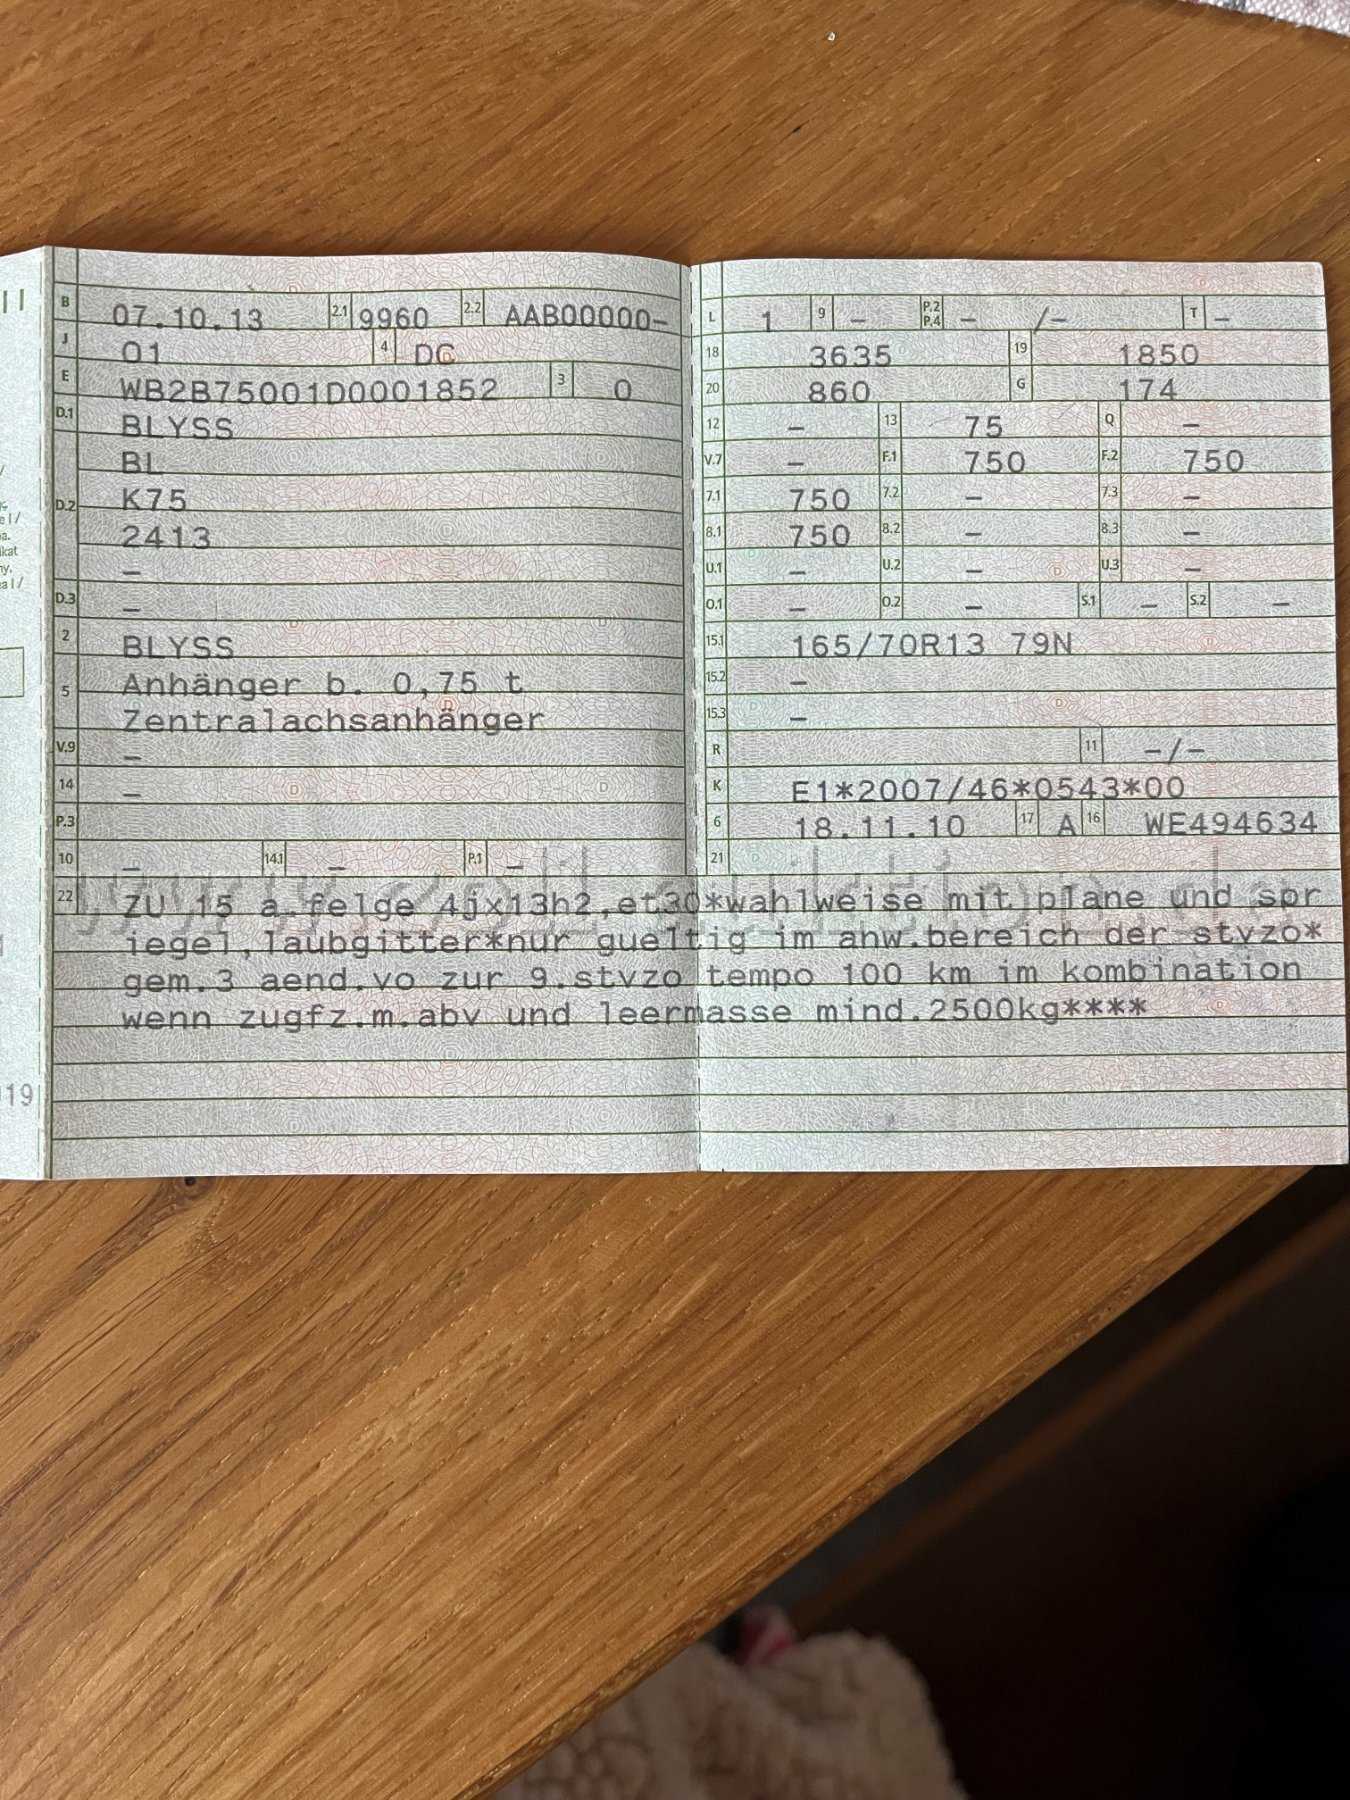 B 07.10.13 2.1 9960 2.2 AAB00000-
J 01 4 DC
E WB2B75001D0001852 3 0
D.1 BLYSS
BL
D.2 K75
2413
–
D.3 –
2 BLYSS
5 Anhänger b. 0,75 t
Zentralachsanhänger
V.9 –
14 –
P.3
10 – 14.1 – P.1 –
L 1 9 – P.2 P.4 – /– T –
18 3635 19 1850
20 860 G 174
12 – 13 75 Q –
V.7 – F.1 750 F.2 750
7.1 750 7.2 – 7.3 –
8.1 750 8.2 – 8.3 –
U.1 – U.2 – U.3 –
O.1 – O.2 – S.1 – S.2 –
15.1 165/70R13 79N
15.2 –
15.3 –
R 11 –/–
K E1*2007/46*0543*00
6 18.11.10 17 A 16 WE494634
21
22 ZU 15 a.felge 4jx13h2,et30*wahlweise mit plane und spr
iegel,laubgitter*nur gueltig im anw.bereich der stvzo*
gem.3 aend.vo zur 9.stvzo tempo 100 km im kombination
wenn zugfz.m.abv und leermasse mind.2500kg****
19